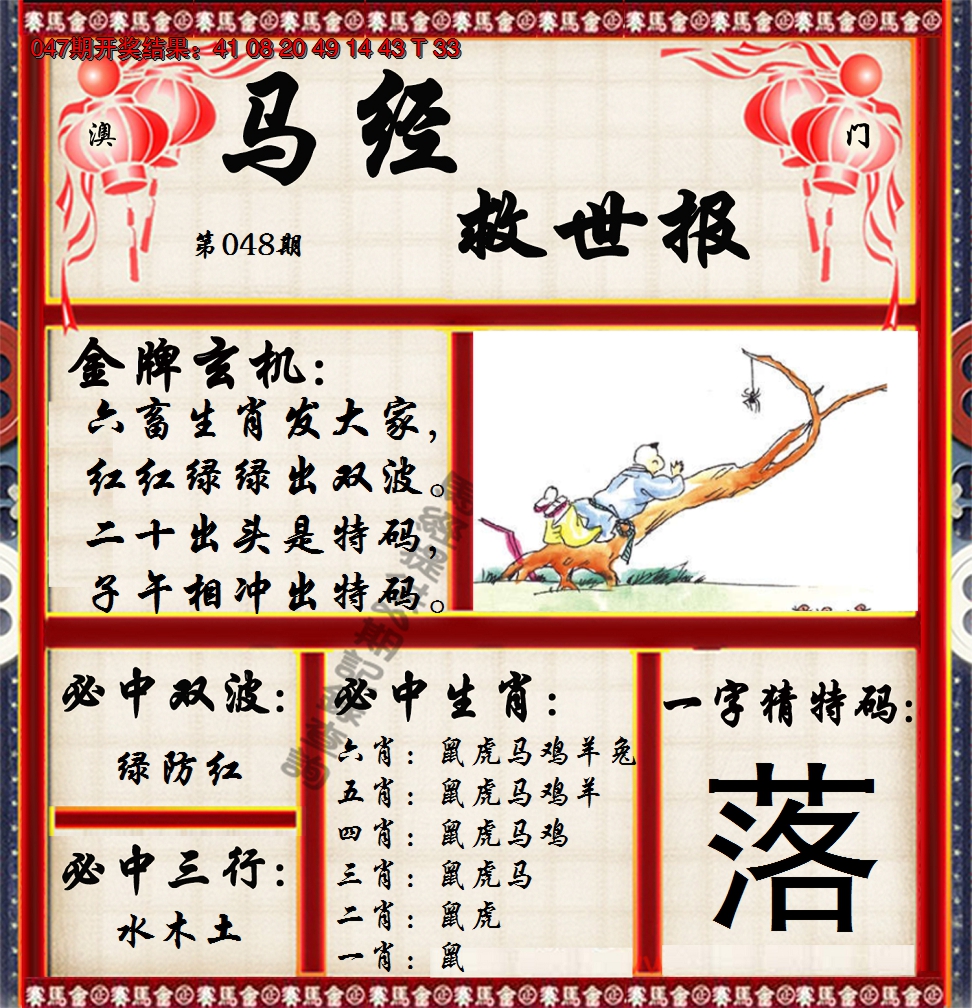 047期开奖结果：41 08 20 49 14 43 T 33
澳
门
马经
救世报
第048期
金牌玄机：
六畜生肖发大家，
红红绿绿出双波。
二十出头是特码，
子午相冲出特码。
必中双波：
绿防红
必中三行：
水木土
必中生肖：
六肖：鼠虎马鸡羊兔
五肖：鼠虎马鸡羊
四肖：鼠虎马鸡
三肖：鼠虎马
二肖：鼠虎
一肖：鼠
一字猜特码：
落